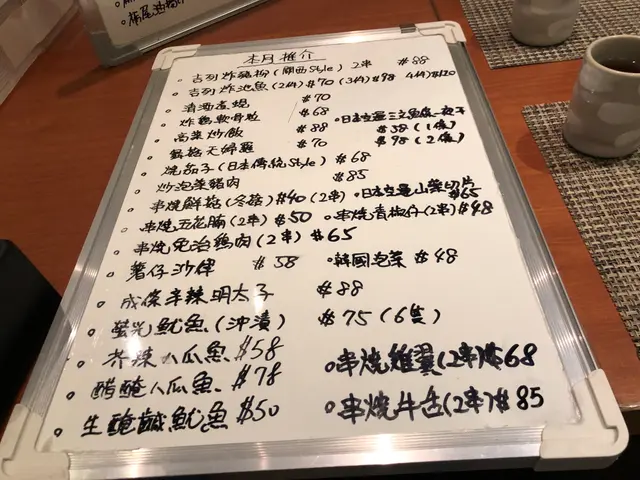 炸尾油揚
本月推介
吉列炸豬扒(關西Style) 2串 $88
吉列炸池魚(2件)$70 (3件)$98 4件$120
清酒煮蜆 $70
炸雞軟骨粒 $68
高菜炒飯 $88
日本空運三文魚條一夜干 $58(1條) $98(2條)
菇天婦羅 $70
燒茄子(日本傳統Style) $68
炒泡菜豬肉 $85
串燒鮮菇(冬菇)$40(2串)
日本空運山葵切片 $65
串燒五花腩(2串)$50
串燒青椒仔(2串)$48
串燒免治鷄肉(2串)$65
薯仔沙律 $58
韓國泡菜 $48
成條辛辣明太子 $88
螢光魷魚(沖漬) $75(6隻)
芥辣八瓜魚 $58
串燒雞翼(2串)$68
醋醃八瓜魚 $78
生醃鹹魷魚 $50
串燒牛舌(2串)$85